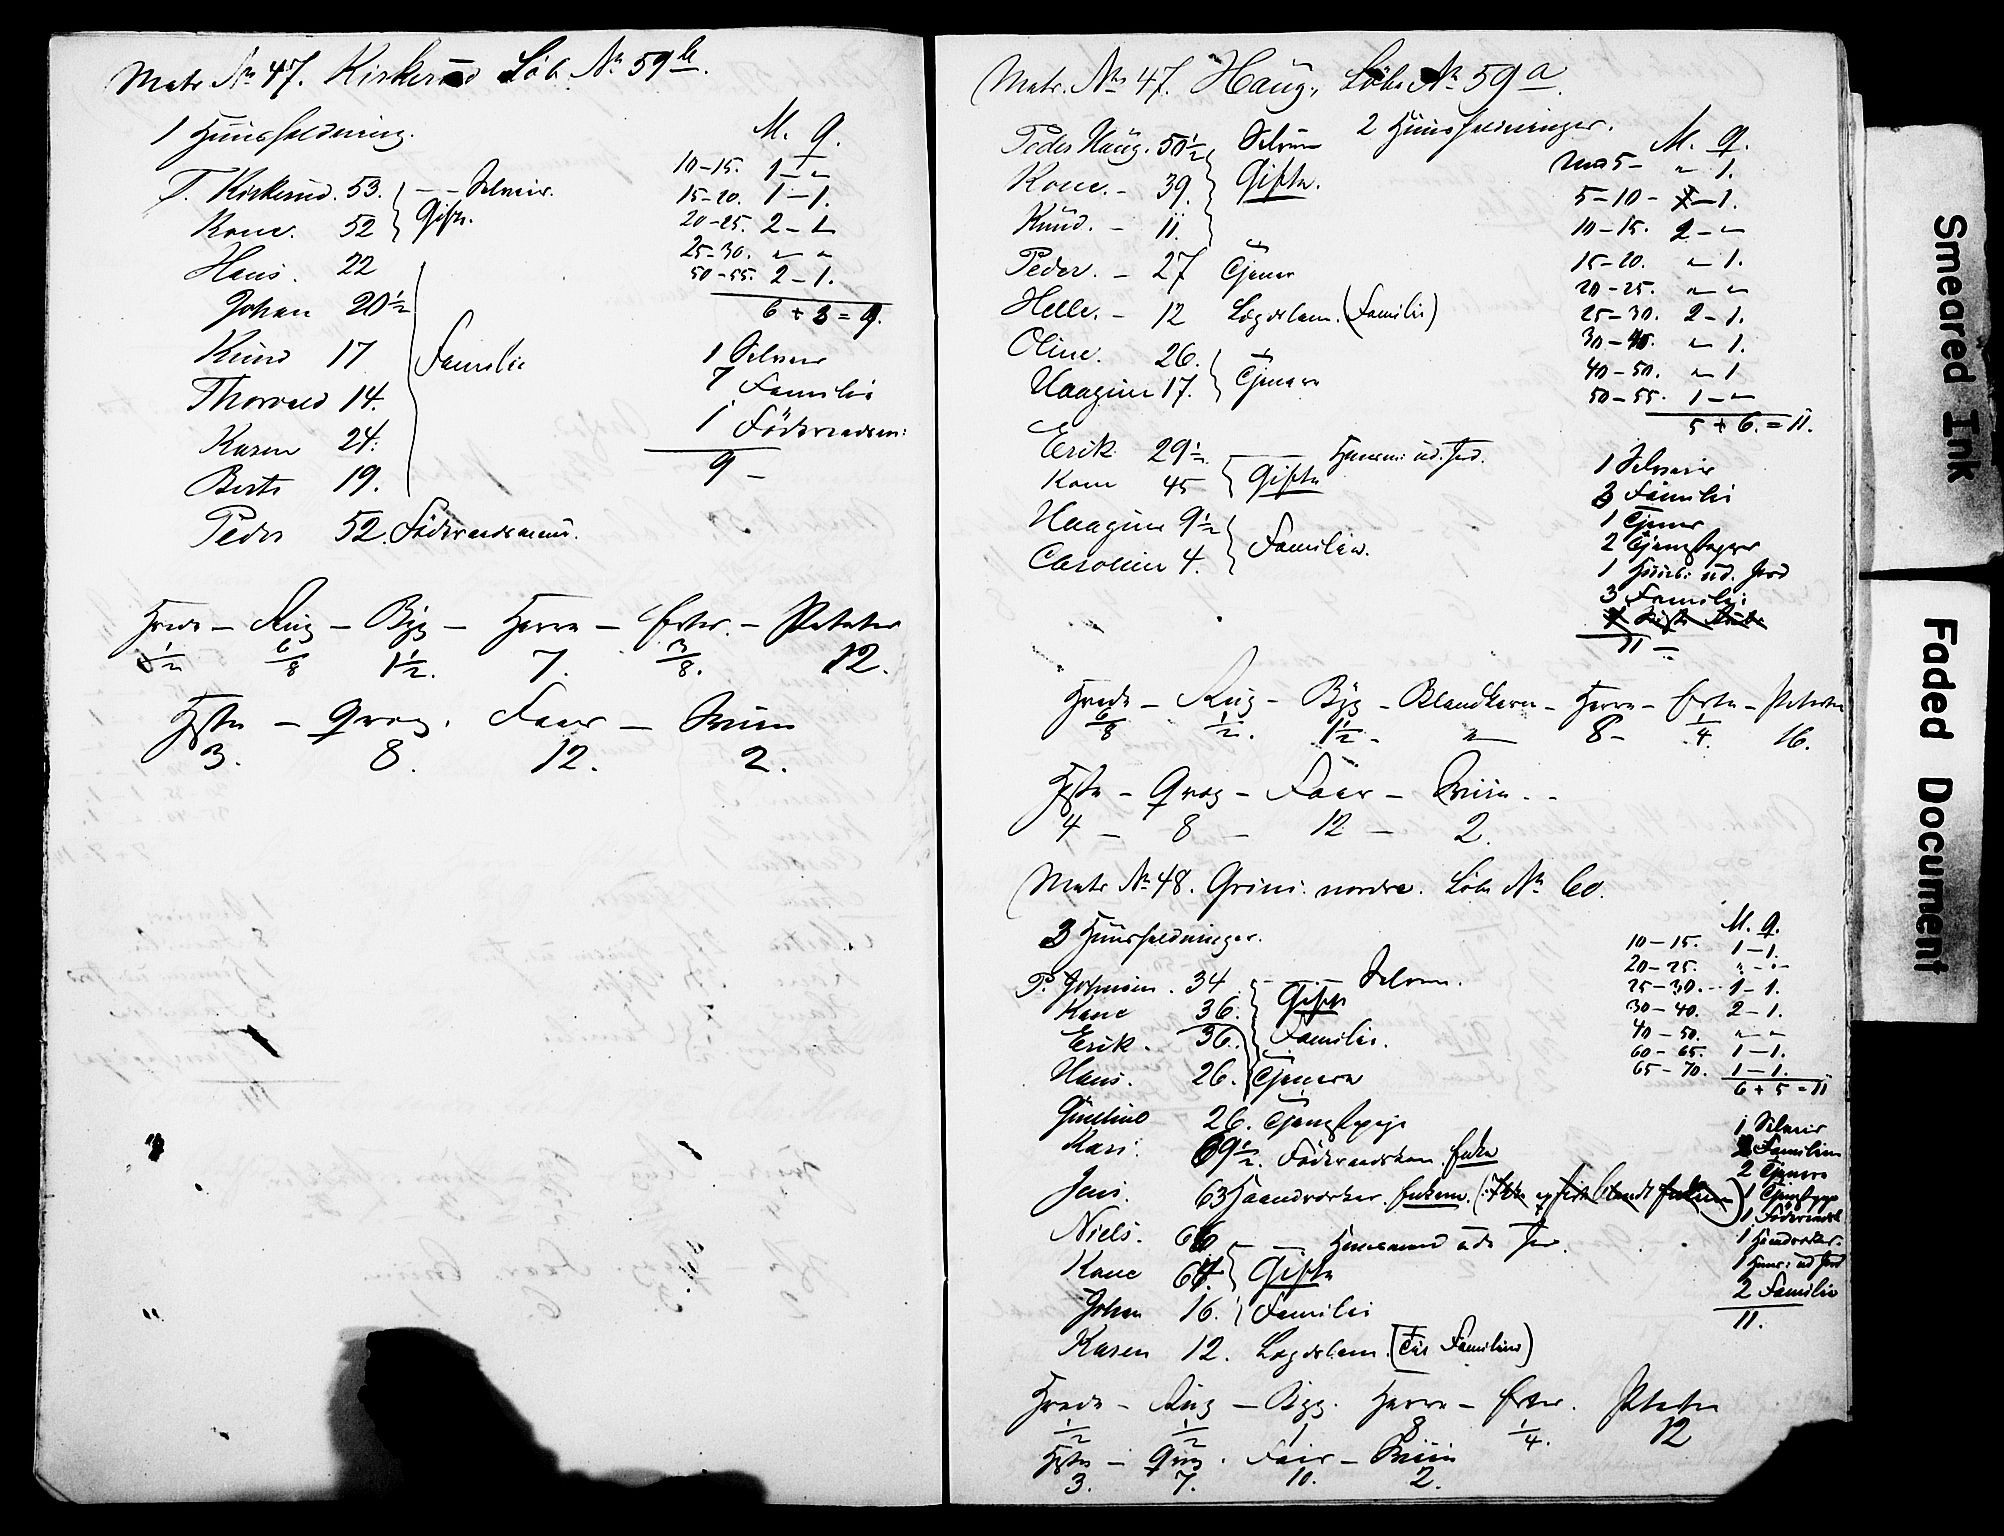 Matr № 47. Kirkerud Löb. № 59 b.
1 Huusholdning.
M. Q.
T. Kirkerud. 53. – – Selveier.
Kone. 52 Gift.
Hans. 22
Johan 20½
Knud 17 Familie
Thorvald 14.
Karen 24.
Berte 19.
Peder 52. Föderaadsmand.
10–15. 1 – „
15–20. 1 – 1.
20–25. 2 – 1
25–30. „ „
50–55. 2 – 1.
6 + 3 = 9.
1 Selveier
7 Familie
1 Föderaadsm:
9 –
Hvede – Rug – Byg – Havre – Erter. – Poteter
½ 6/8 1½. 7. 3/8. 12.
Heste – Qvæg. Faar – Sviin
3. 8. 12. 2.
Matr. № 47. Haug, Löbe № 59 a.
2 Huusholdninger.
M. Q.
Peder Haug. 50½ Selveier
Kone. – 39. Gifte.
Knud. – 11.
Peder. – 27 Tjener
Helle. – 12 Lægdslem. (Familie)
Oline. 26.
Haagine 17. Tjenere
Erik 29½. Huusm: ud. Jord.
Kone 45 Gifte
Haagine 9½
Caroline 4. Familie.
5 – „ 1.
5–10 – 1.
10–15. 2 – „
15–20. „ 1.
20–25. „ „
25–30. 2 – 1.
30–40. „ 1.
40–50. „ 1
50–55. 1 – „
5 + 6. = 11.
1 Selveier
3 Familie
1 Tjener
2 Tjenestepiger
1 Huusm: ud. Jord
3 Familie
11 –
Hvede – Rug – Byg – Blandkorn – Havre – Erter – Poteter
6/8 ½. 1½ – „ 8 – ¼. 16.
Heste – Qvæg – Faar – Sviin. –
4 – 8 – 12 – 2.
Matr № 48. Grini nordre. Löbe № 60.
3 Huusholdninger.
M. Q.
P. Johnsen. 34 – – Selveier.
Kone 36. Gifte
Erik. 36. Familie.
Hans. 26. Tjenere
Gulline 26. Tjenestepige
Kari. 69½. Föderaadskone. Enke
Jens. 63 Haandværker. Enkem.
Niels. 66 – – Huusmand ude Jor.
Kone 64. Gifte
Johan 16. Familie
Karen 12. Lægdslem. (Familien)
10–15. 1 – 1.
20–25. „ – „
25–30. 1 – 1.
30–40. 2 – 1.
40–50. „ „
60–65. 1 – 1.
65–70. 1 – 1.
6 + 5 = 11
1 Selveier
2 Familien
2 Tjenere
1 Tjenestepige
1 Föderaadsk
1 Haandværker.
1 Huus: ud Jord
2 Familie
11.
Hvede – Rug – Byg. Havre – Erter. Poteter
½ ½ 1 8 ¼. 12
Heste – Qvæg. Faar – Sviin
3. 7. 10. 2.
Smeared Ink
Faded Document